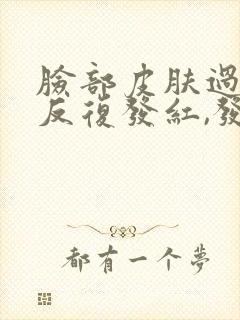 臉部皮肤過
反復發紅,發
都有一个夢